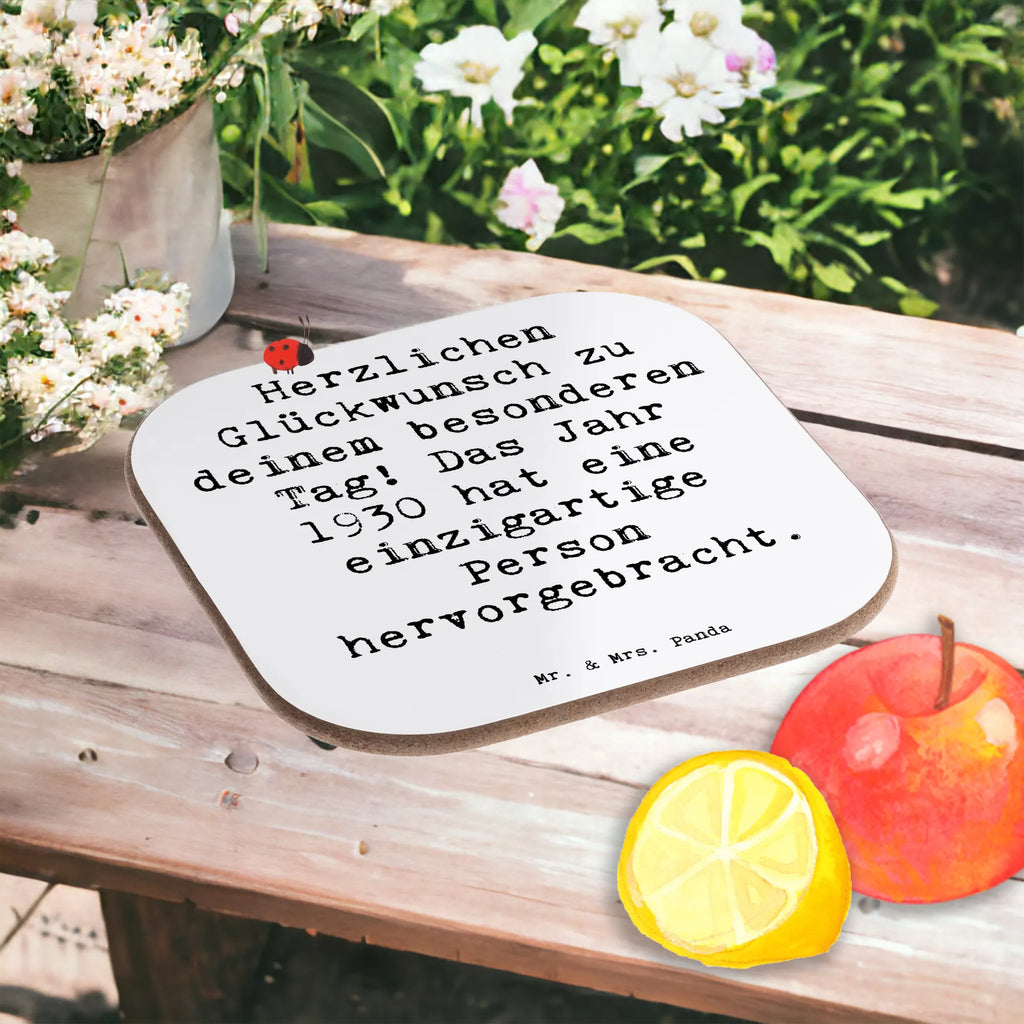 Herzlichen
Glückwunsch zu
deinem besonderen
Tag! Das Jahr
1930 hat eine
einzigartige
Person
hervorgebracht.
Mr. & Mrs. Panda